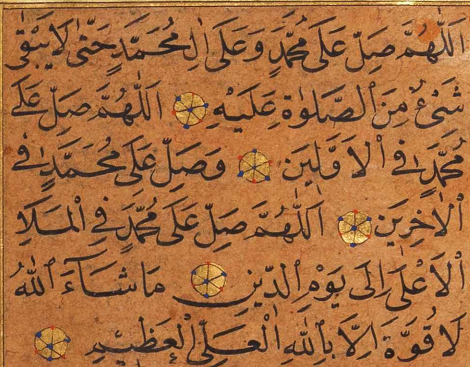 اَللّٰهُمَّ صَلِّ عَلٰى مُحَمَّدٍ وَعَلٰى اٰلِ مُحَمَّدٍ حَتّٰى لَا يَبْقٰى
شَىْءٌ مِنَ الصَّلٰوةِ عَلَيْهِ اَللّٰهُمَّ صَلِّ عَلٰى
مُحَمَّدٍ فِى الْاَوَّلِينَ وَصَلِّ عَلٰى مُحَمَّدٍ فِى
الْاٰخِرِينَ اَللّٰهُمَّ صَلِّ عَلٰى مُحَمَّدٍ فِى الْمَلَاِ
الْاَعْلٰى اِلٰى يَوْمِ الدِّينِ مَا شَآءَ اللّٰهُ
لَا قُوَّةَ اِلَّا بِاللّٰهِ الْعَلِىِّ الْعَظِيْمِ